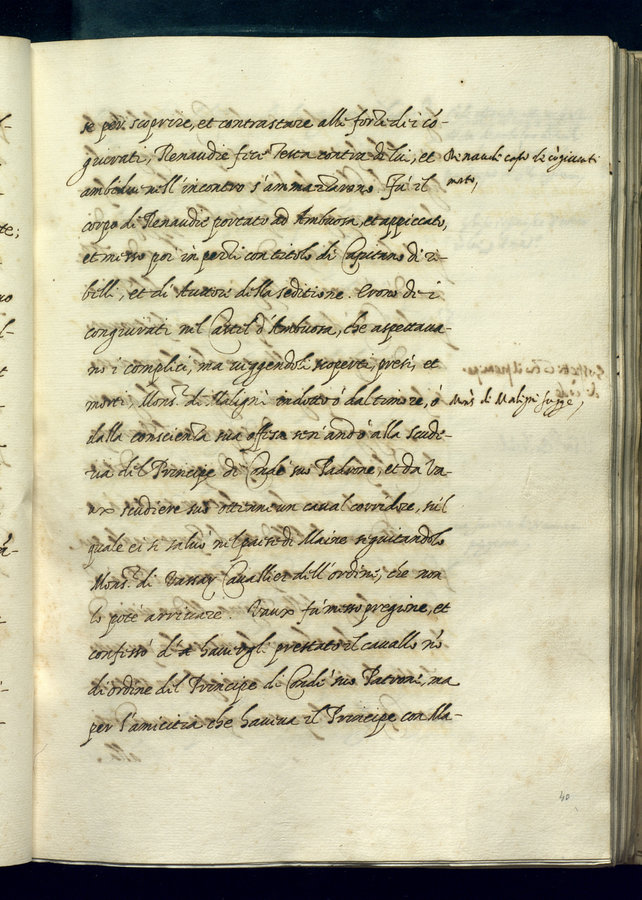 se per scoprire, et contrastare alle forze de i cō-
giurati, Renaudie fece testa contra di lui, et
Renaude capo de cōgiurati
morto,
ambidui nell'incontro s'ammazzarono. Fù il
corpo di Renaudie portato ad Ambuosa, et appiccato,
et messo poi in pezzi con titolo di Capitano di re-
belli, et di Auttore della seditione. Erono de i
congiurati nel Castel d'Ambuosa, che aspettaua-
no i complici, ma veggendoli scoperti, presi, et
morti, Mons.r di Maligni indotto ò dal timore, ò
Mons.r di Maligni fugge,
dalla conscienza sua offesa se n'andò alla scude-
ria del Principe di Condé suo Padrone, et da Va-
ux scudiere suo ottiene un caual corridore, sul
quale ei si saluò nel paese di Maine seguitandolo
Mons.r di Vassay Cauallier dell'ordine, che non
lo poté arriuare. Vaux fù messo pregione, et
confessò di hauergli prestato il cauallo nō
di ordine del Principe di Condé suo Patrone, ma
per l'amicitia che haueua il Principe con Ma-
40